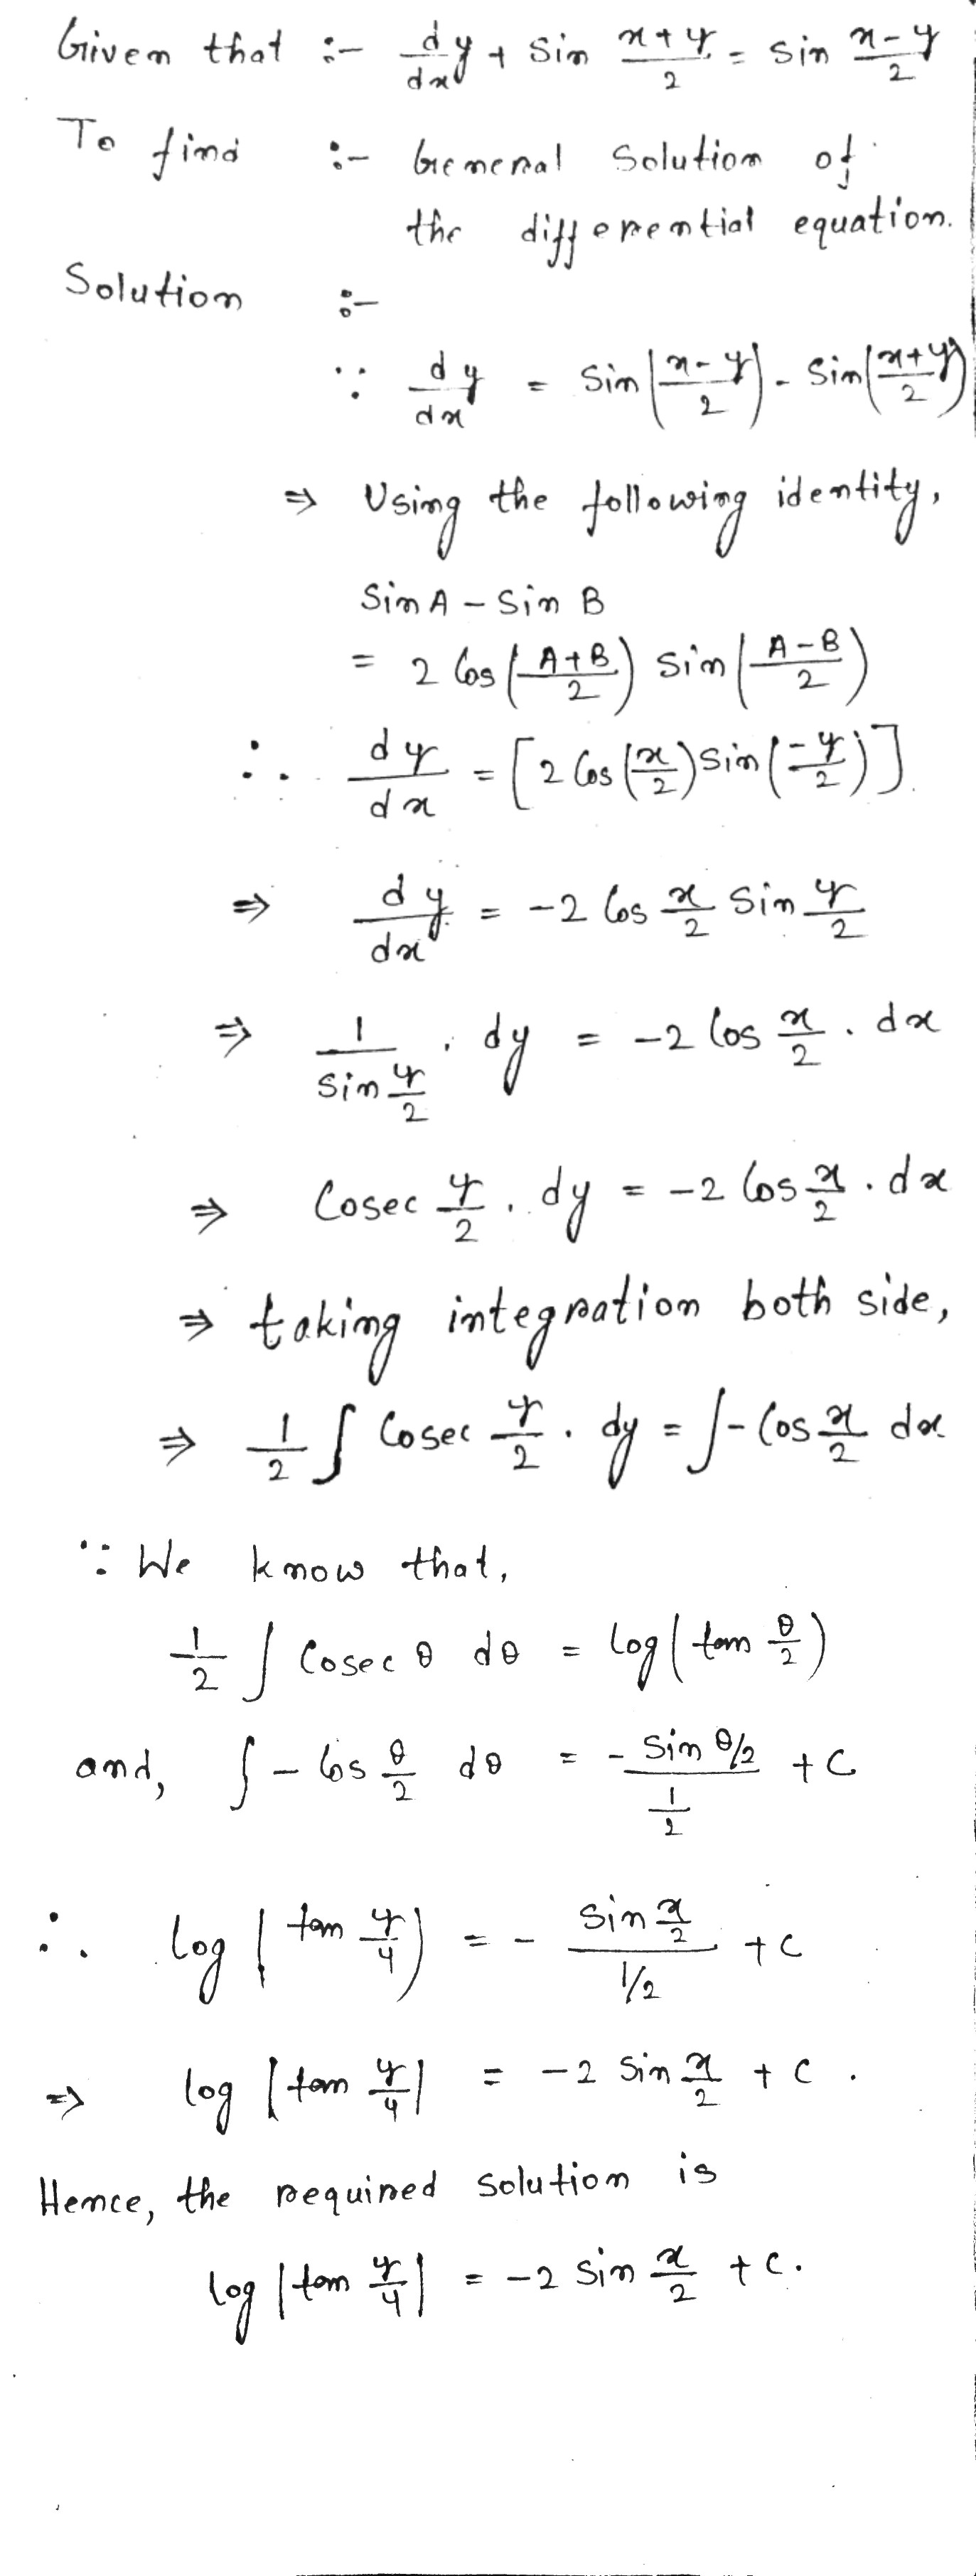 Given that :- dy/dx + Sin x+y/2 = Sin x-y/2
To find :- General Solution of
the differential equation.
Solution :-
∵ dy/dx = Sin(x-y/2) - Sin(x+y/2)
⇒ Using the following identity,
Sin A - Sin B
= 2 Cos(A+B/2) Sin(A-B/2)
∴ dy/dx = [2 Cos(x/2) Sin(-y/2)]
⇒ dy/dx = -2 Cos x/2 Sin y/2
⇒ 1/Sin y/2 . dy = -2 Cos x/2 . dx
⇒ Cosec y/2 . dy = -2 Cos x/2 . dx
⇒ taking integration both side,
⇒ 1/2 ∫ Cosec y/2 . dy = ∫ - Cos x/2 dx
∵ We know that,
1/2 ∫ Cosec θ dθ = log(tan θ/2)
and, ∫ - Cos θ/2 dθ = - Sin θ/2 / 1/2 + C
∴ log |tan y/4) = - Sin x/2 / 1/2 + C
⇒ log |tan y/4| = -2 Sin x/2 + C .
Hence, the required solution is
log |tan y/4| = -2 Sin x/2 + C.